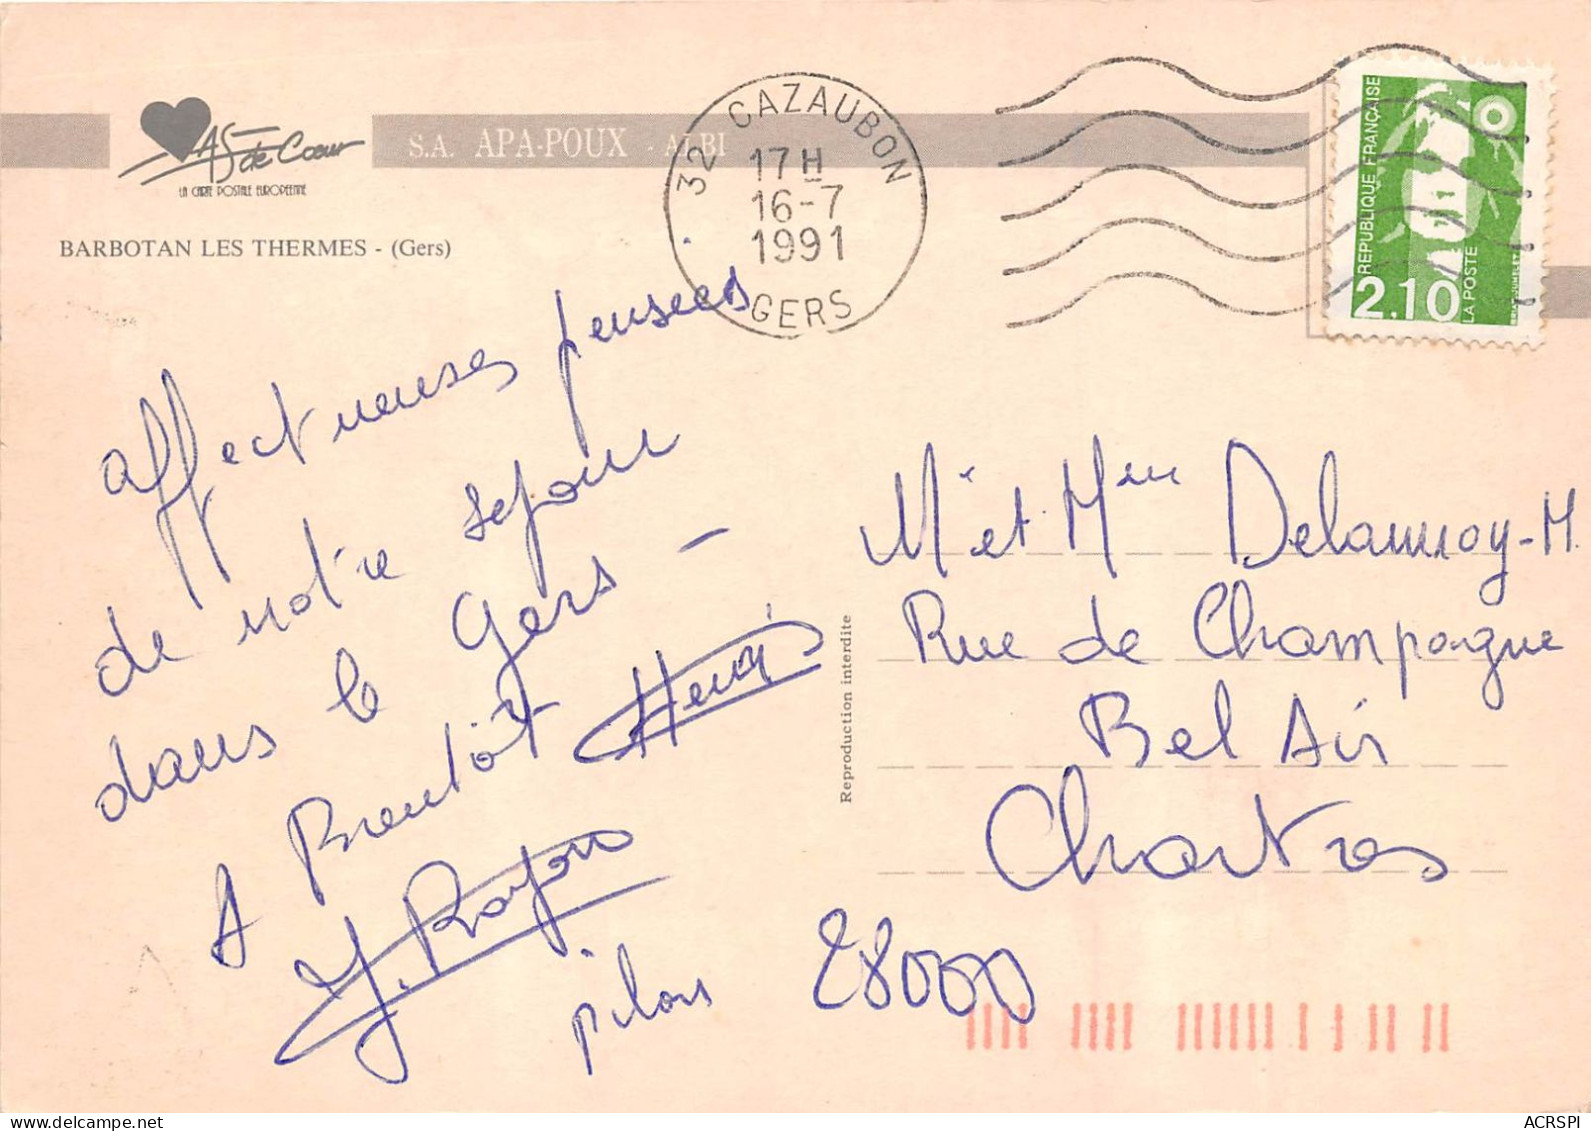 AS de Coeur
LA CARTE POSTALE EUROPEENNE
S.A. APA-POUX - ALBI
BARBOTAN LES THERMES - (Gers)
32 CAZAUBON
17 H
16-7
1991
GERS
REPUBLIQUE FRANÇAISE
2.10
LA POSTE
affectueuses pensees
de notre sejour
dans le Gers -
A Bientôt Henri
pilou
Reproduction interdite
M et Mme Delaunoy-M.
Rue de Champagne
Bel Air
Chartres
28000
ACRSPI